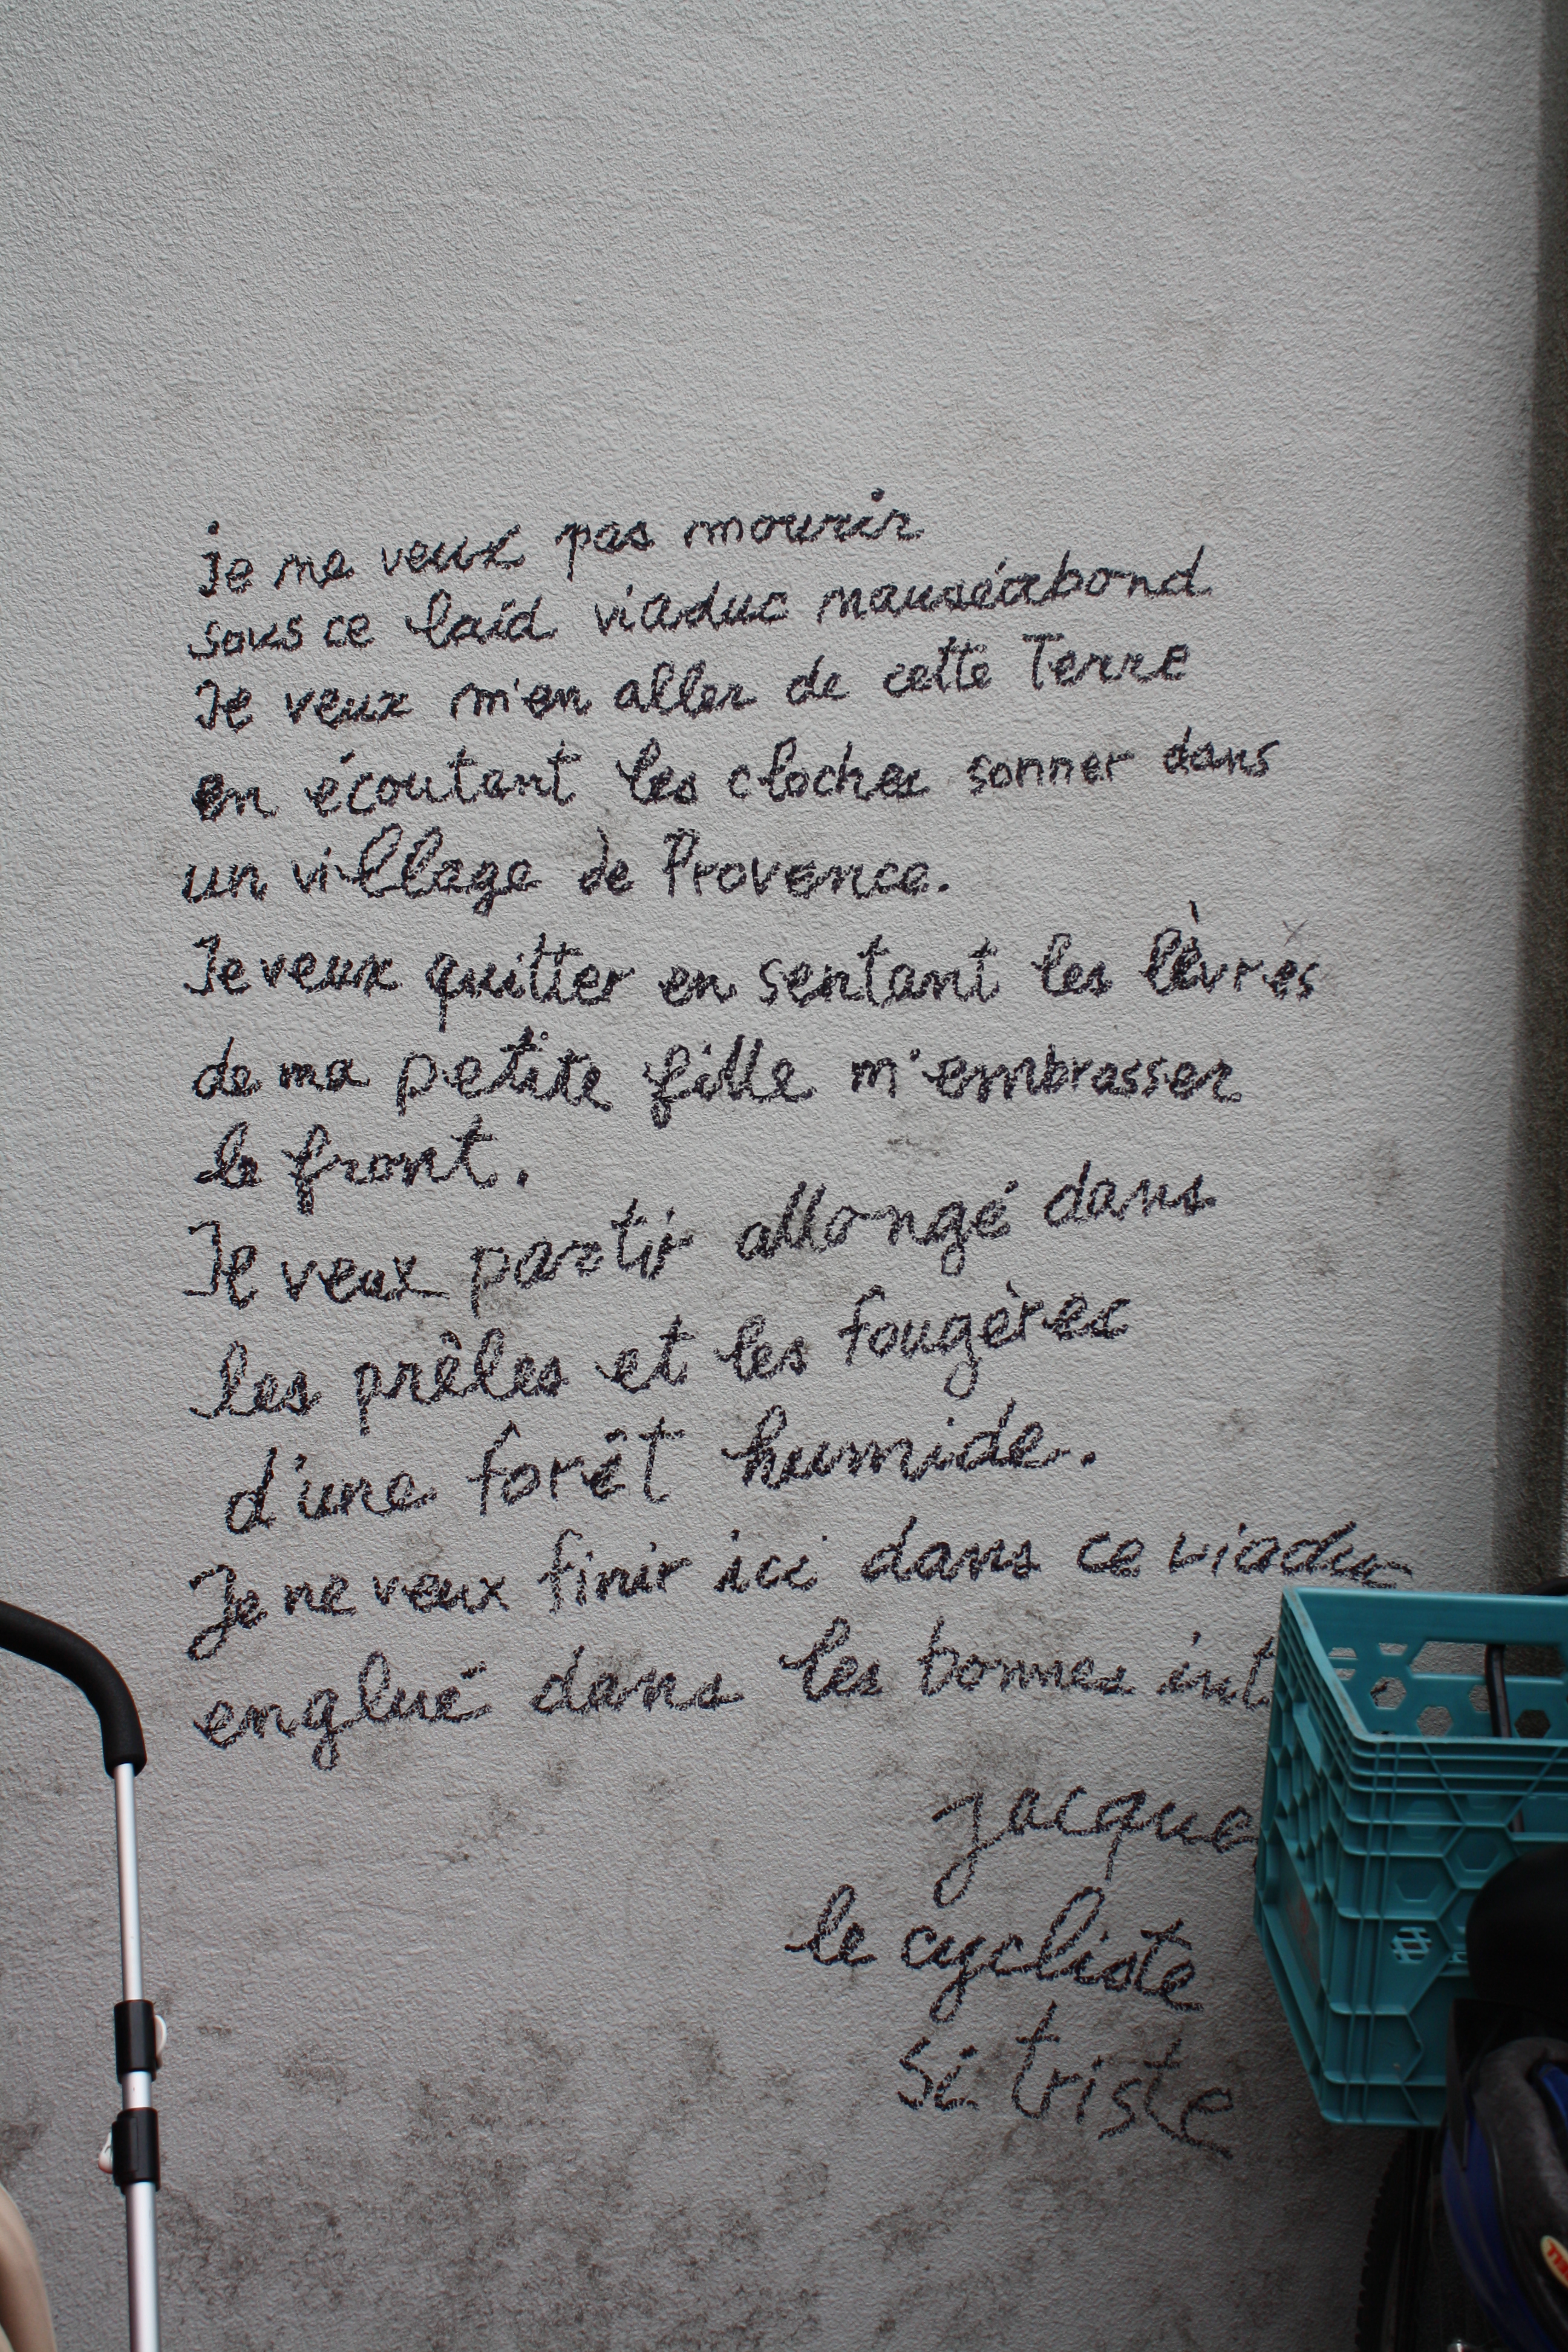 je ne veux pas mourir
sous ce laid viaduc nauséabond
Je veux m'en aller de cette Terre
en écoutant les cloches sonner dans
un village de Provence.
Je veux quitter en sentant les lèvres
de ma petite fille m'embrasser
le front.
Je veux partir allongé dans
les prêles et les fougères
d'une forêt humide.
Je ne veux finir ici dans ce viaduc
englué dans les bonnes int
Jacque
le cycliste
si triste